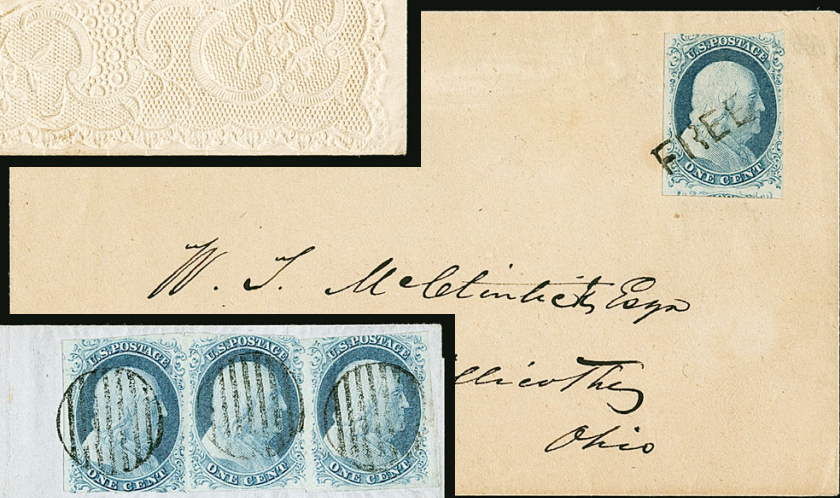 U.S. POSTAGE
FREE
ONE CENT
W. T. McClintick Esqr
llicothe
Ohio
U.S. POSTAGE U.S. POSTAGE U.S. POSTAGE
ONE CENT ONE CENT ONE CENT